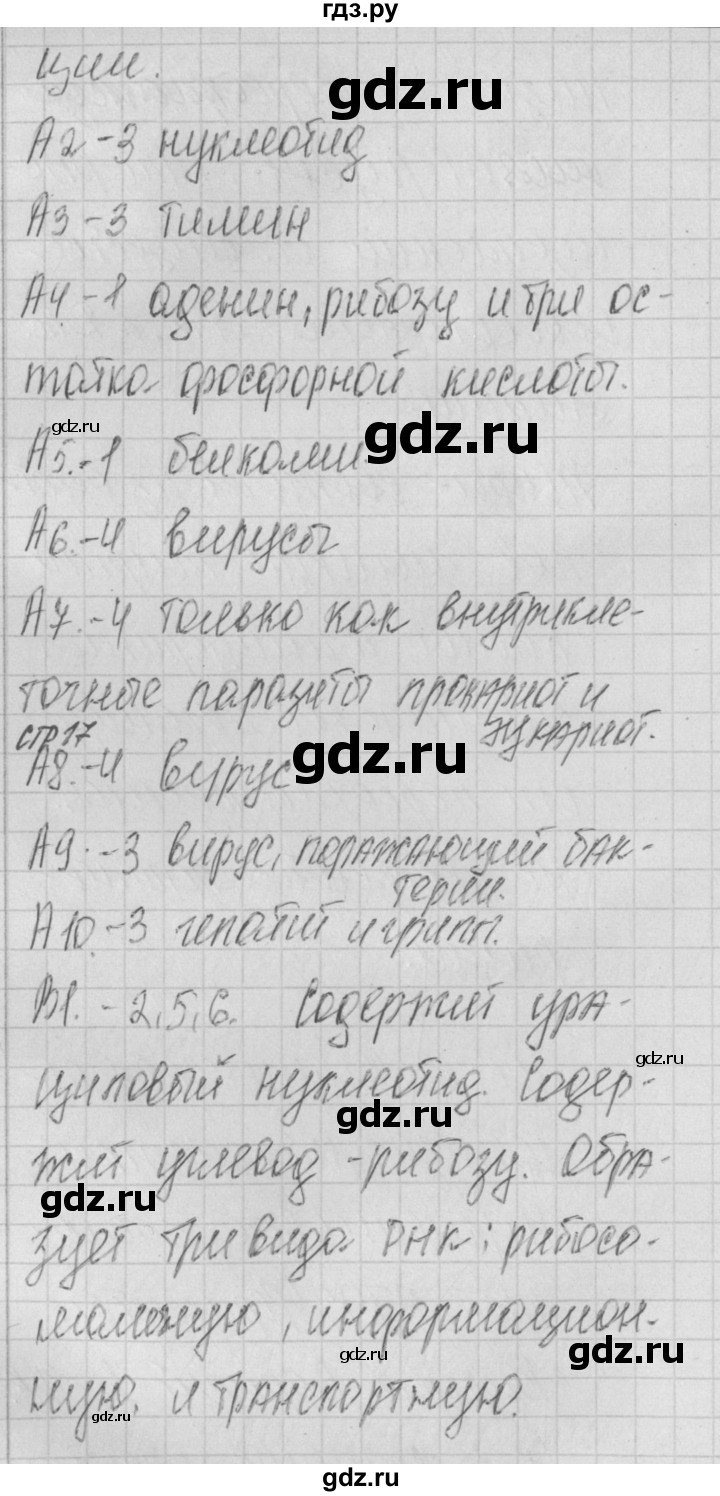 гдз.ру
ции.
gdz.ru
А2-3 нуклеотид
А3-3 тимин
А4-1 аденин, рибозу и три ос-
татка фосфорной кислоты.
gdz.ru
А5.-1 белками
gdz.ru
А6.-4 вирусы
А7.-4 только как внутрикле-
точные паразиты прокариот и
эукариот.
стр17
А8.-4 вирус
gdz.ru
А9.-3 вирус, поражающий бак-
терии.
А10.-3 гепатит и грипп.
В1.-2,5,6. Содержит ура-
gdz.ru
циловый нуклеотид. Содер-
gdz.ru
жит углевод -рибозу. Обра-
gdz.ru
зует три вида РНК: рибосо-
мальную, информацион-
gdz.ru
gdz.ru
ную. и транспортную.
gdz.ru
gdz.ru